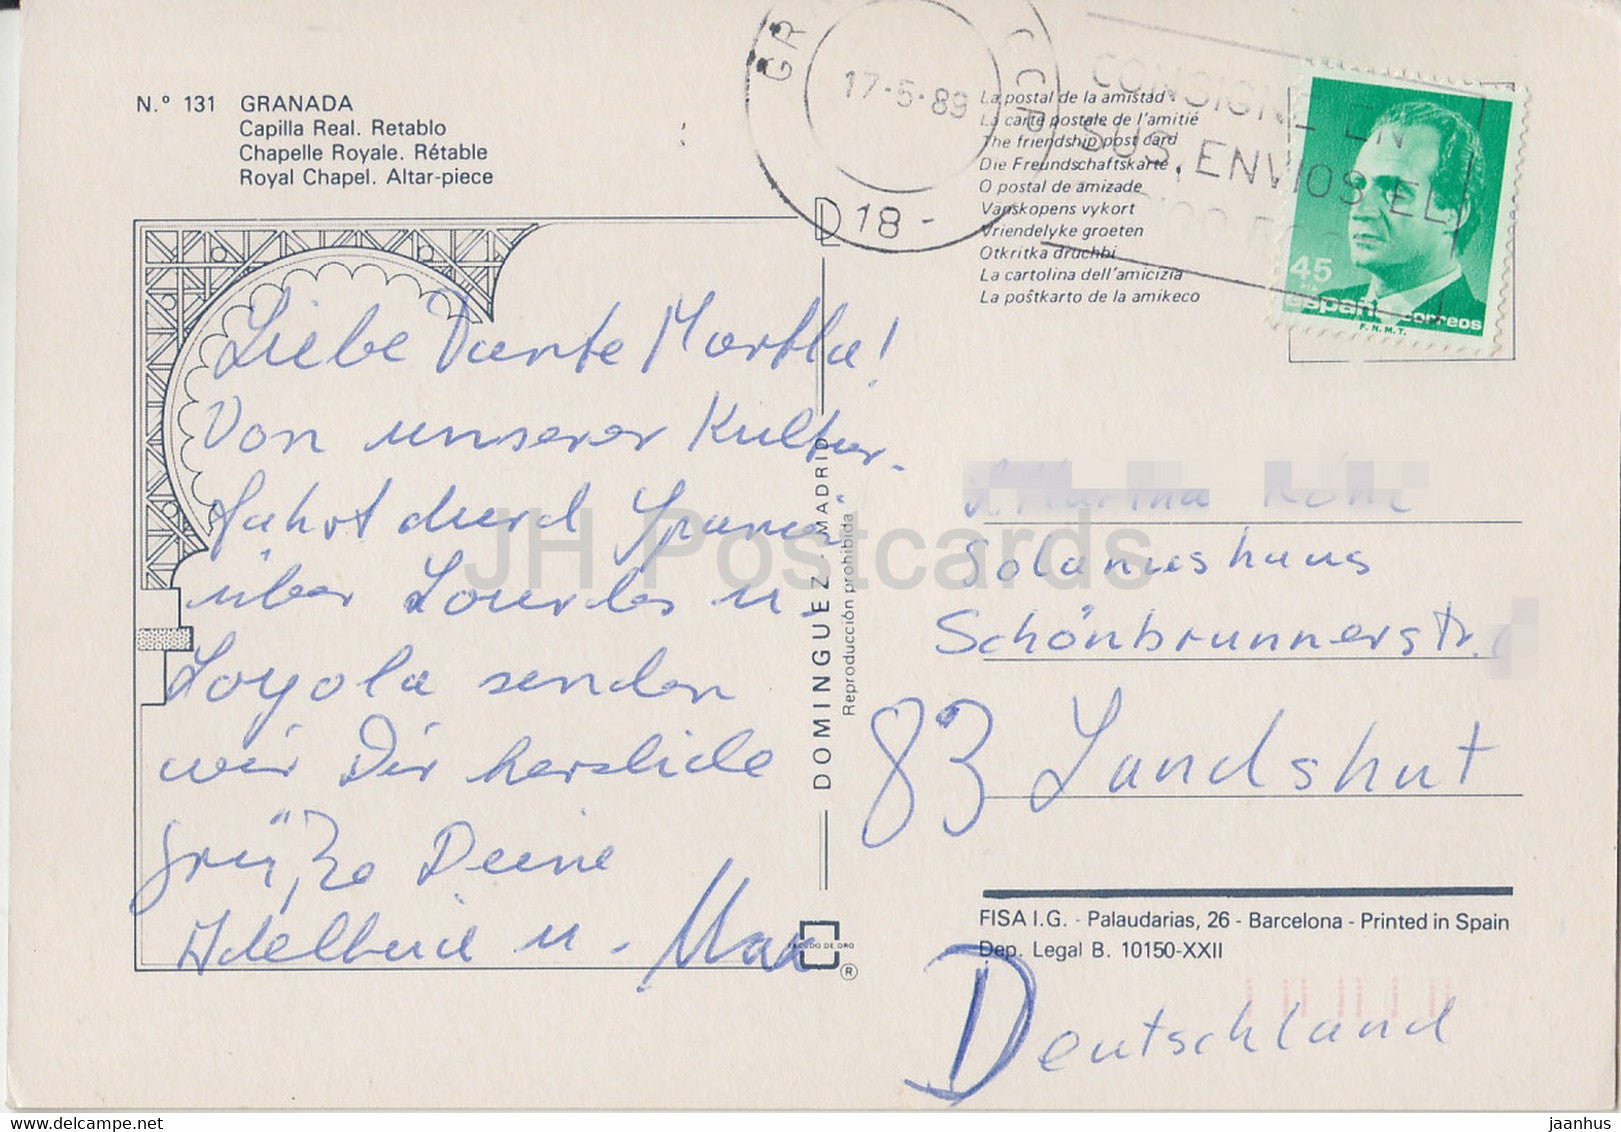 N.º 131 GRANADA
Capilla Real. Retablo
Chapelle Royale. Rétable
Royal Chapel. Altar-piece
GR
17-5-89
18-
La postal de la amistad
La carte postale de l'amitié
The friendship post card
Die Freundschaftskarte
O postal de amizade
Vanskopens vykort
Vriendelyke groeten
Otkritka druchbi
La cartolina dell'amicizia
La poŝtkarto de la amikeco
CONSIGNE EN
SUS ENVIOS EL
45
españa correos
F.N.M.T.
Liebe Tante Martha!
Von unserer Kultur-
fahrt durch Spanien
über Lourdes u.
Loyola senden
wir Dir herzliche
Grüße Deine
Adelheid u. Max
DOMINGUEZ - MADRID
Reproducción prohibida
ESCUDO DE ORO
®
Solanushaus
Schönbrunnerstr.
83 Landshut
FISA I.G. - Palaudarias, 26 - Barcelona - Printed in Spain
Dep. Legal B. 10150-XXII
Deutschland
JH Postcards
delcampe.net
jaanhus